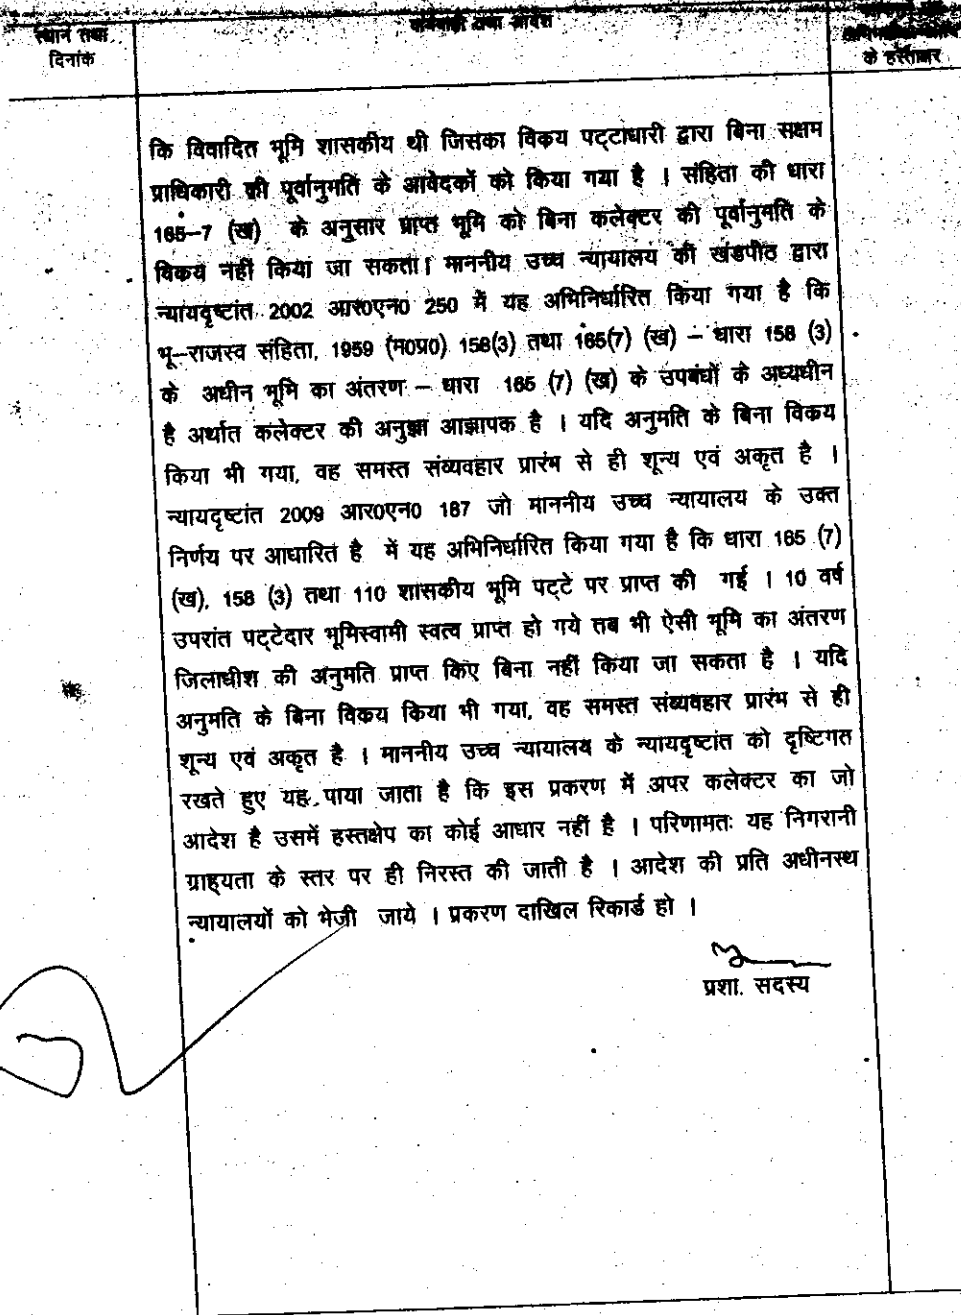 स्थान तथा
दिनांक
कार्यवाही तथा आदेश
के हस्ताक्षर
कि विवादित भूमि शासकीय थी जिसका विक्रय पट्टाधारी द्वारा बिना सक्षम
प्राधिकारी की पूर्वानुमति के आवेदकों को किया गया है । संहिता की धारा
165–7 (ख) के अनुसार प्राप्त भूमि को बिना कलेक्टर की पूर्वानुमति के
विक्रय नहीं किया जा सकता। माननीय उच्च न्यायालय की खंडपीठ द्वारा
न्यायदृष्टांत 2002 आर0एन0 250 में यह अभिनिर्धारित किया गया है कि
भू–राजस्व संहिता, 1959 (म0प्र0) 158(3) तथा 165(7) (ख) – धारा 158 (3)
के अधीन भूमि का अंतरण – धारा 165 (7) (ख) के उपबंधों के अध्यधीन
है अर्थात कलेक्टर की अनुज्ञा आज्ञापक है । यदि अनुमति के बिना विक्रय
किया भी गया, वह समस्त संव्यवहार प्रारंभ से ही शून्य एवं अकृत है ।
न्यायदृष्टांत 2009 आर0एन0 187 जो माननीय उच्च न्यायालय के उक्त
निर्णय पर आधारित है में यह अभिनिर्धारित किया गया है कि धारा 165 (7)
(ख), 158 (3) तथा 110 शासकीय भूमि पट्टे पर प्राप्त की गई । 10 वर्ष
उपरांत पट्टेदार भूमिस्वामी स्वत्व प्राप्त हो गये तब भी ऐसी भूमि का अंतरण
जिलाधीश की अनुमति प्राप्त किए बिना नहीं किया जा सकता है । यदि
अनुमति के बिना विक्रय किया भी गया, वह समस्त संव्यवहार प्रारंभ से ही
शून्य एवं अकृत है । माननीय उच्च न्यायालय के न्यायदृष्टांत को दृष्टिगत
रखते हुए यह पाया जाता है कि इस प्रकरण में अपर कलेक्टर का जो
आदेश है उसमें हस्तक्षेप का कोई आधार नहीं है । परिणामतः यह निगरानी
ग्राह्यता के स्तर पर ही निरस्त की जाती है । आदेश की प्रति अधीनस्थ
न्यायालयों को भेजी जाये । प्रकरण दाखिल रिकार्ड हो ।
प्रशा. सदस्य